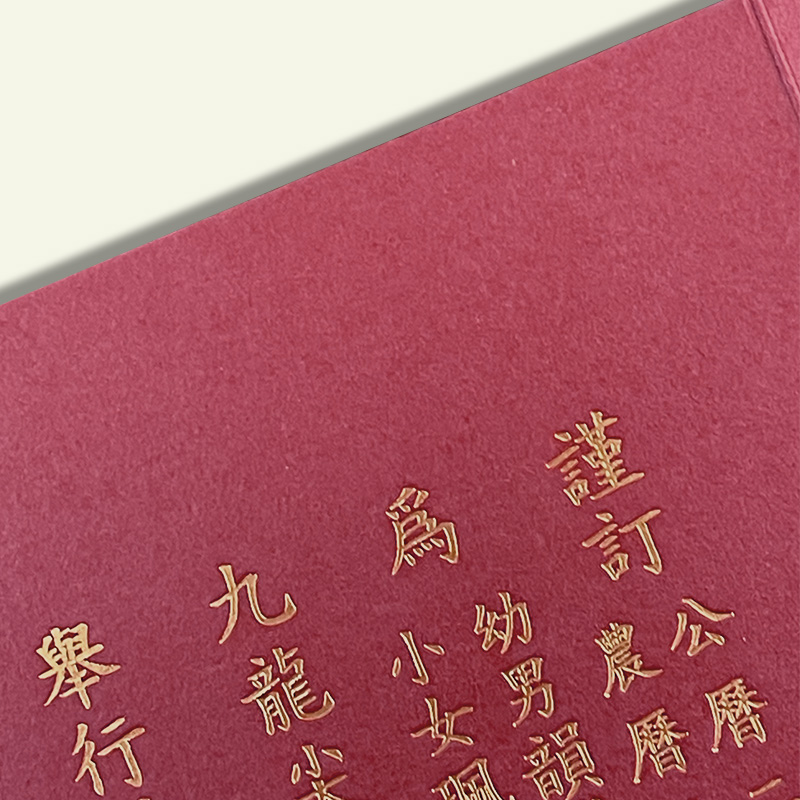 謹訂
公曆
農曆
爲
幼男韻
小女
九龍
舉行